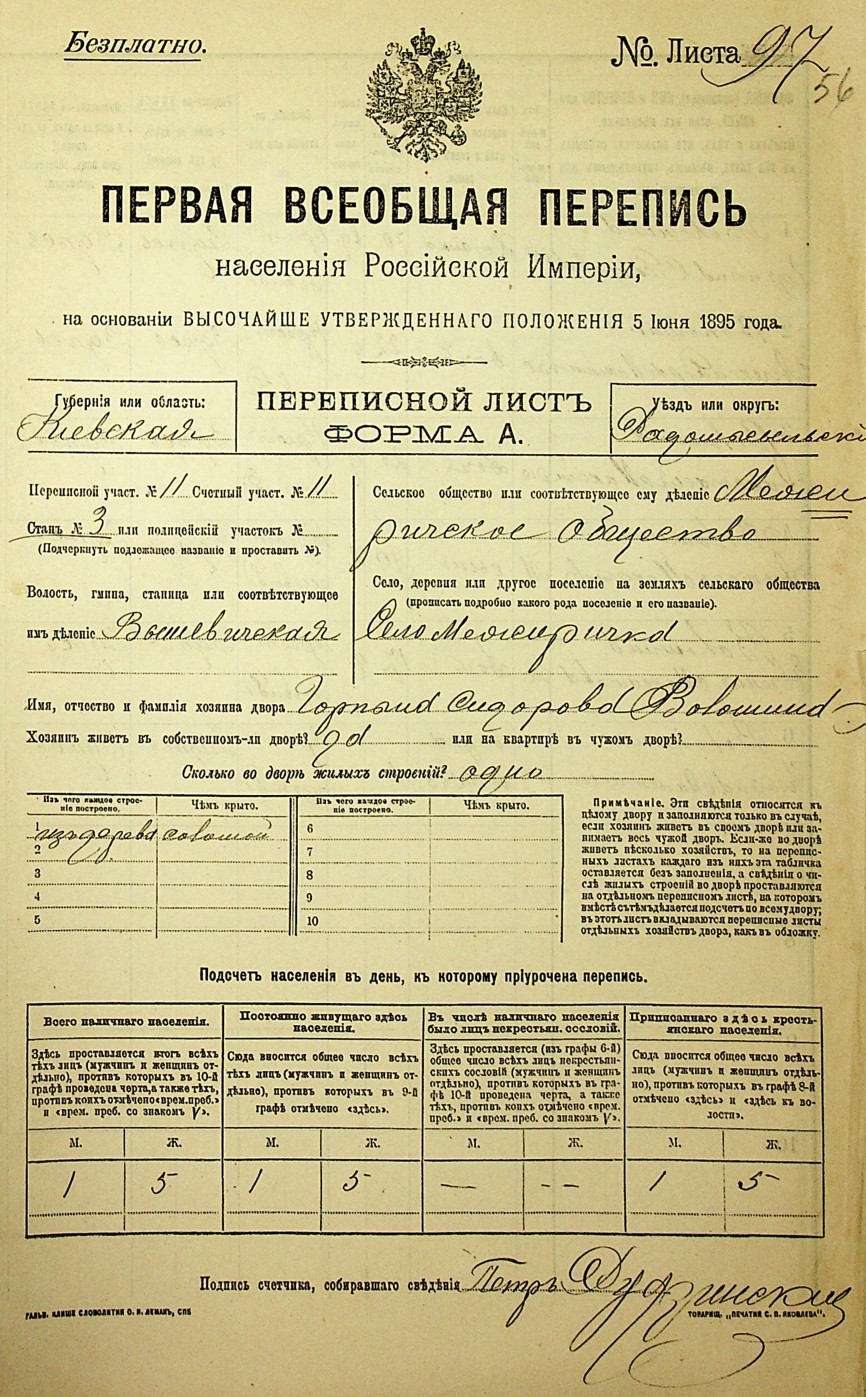 Безплатно.
№. Листа 97
56
ПЕРВАЯ ВСЕОБЩАЯ ПЕРЕПИСЬ
населенія Россійской Имперіи,
на основаніи ВЫСОЧАЙШЕ УТВЕРЖДЕННАГО ПОЛОЖЕНІЯ 5 Іюня 1895 года.
Губернія или область:
Кіевская
ПЕРЕПИСНОЙ ЛИСТЪ
ФОРМА А.
Уѣздъ или округъ:
Радомысльскій
Переписной участ. № 11 Счетный участ. № 11
Станъ № 3 или полицейскій участокъ №
(Подчеркнуть подлежащее названіе и проставить №).
Волость, гмина, станица или соотвѣтствующее
имъ дѣленіе Вышевичская
Сельское общество или соотвѣтствующее ему дѣленіе Межи
ричское общество
Село, деревня или другое поселеніе на земляхъ сельскаго общества
(прописать подробно какого рода поселеніе и его названіе).
Село Межиричка
Имя, отчество и фамилія хозяина двора Горпына Сидорова Волошина
Хозяинъ живетъ въ собственномъ-ли дворѣ? да или на квартирѣ въ чужомъ дворѣ?
Сколько во дворѣ жилыхъ строеній? одно
Изъ чего каждое строе-
ніе построено.
Чѣмъ крыто.
Изъ чего каждое строе-
ніе построено.
Чѣмъ крыто.
1 изъ дерева соломой
2
3
4
5
6
7
8
9
10
Примѣчаніе. Эти свѣдѣнія относятся къ
цѣлому двору и заполняются только въ случаѣ,
если хозяинъ живетъ въ своемъ дворѣ или за-
нимаетъ весь чужой дворъ. Если-же во дворѣ
живетъ нѣсколько хозяйствъ, то на перепис-
ныхъ листахъ каждаго изъ нихъ эта табличка
оставляется безъ заполненія, а свѣдѣнія о чи-
слѣ жилыхъ строеній во дворѣ проставляются
на отдѣльномъ переписномъ листѣ, на которомъ
вмѣстѣ съ тѣмъ дѣлается подсчетъ по всему двору;
въ этотъ листъ вкладываются переписные листы
отдѣльныхъ хозяйствъ двора, какъ въ обложку.
Подсчетъ населенія въ день, къ которому пріурочена перепись.
Всего наличнаго населенія.
Здѣсь проставляется итогъ всѣхъ
тѣхъ лицъ (мужчинъ и женщинъ от-
дѣльно), противъ которыхъ въ 10-й
графѣ проведена черта, а также тѣхъ,
противъ коихъ отмѣчено «врем. преб.»
и «врем. преб. со знакомъ V».
Постоянно живущаго здѣсь
населенія.
Сюда вносится общее число всѣхъ
тѣхъ лицъ (мужчинъ и женщинъ от-
дѣльно), противъ которыхъ въ 9-й
графѣ отмѣчено «здѣсь».
Въ числѣ наличнаго населенія
было лицъ некрестьян. сословій.
Здѣсь проставляется (изъ графы 6-й)
общее число всѣхъ лицъ некрестьян-
скихъ сословій (мужчинъ и женщинъ
отдѣльно), противъ которыхъ въ гра-
фѣ 10-й проведена черта, а также
тѣхъ, противъ коихъ отмѣчено «врем.
преб.» и «врем. преб. со знакомъ V».
Приписаннаго здѣсь кресть-
янскаго населенія.
Сюда вносится общее число всѣхъ
лицъ (мужчинъ и женщинъ отдѣль-
но), противъ которыхъ въ графѣ 8-й
отмѣчено «здѣсь» и «здѣсь къ во-
лости».
М. Ж. М. Ж. М. Ж. М. Ж.
1 5 1 5 — -- 1 5
Подпись счетчика, собиравшаго свѣдѣнія Петръ
ГАЛЬВ. КЛИШЕ СЛОВОЛИТНИ О. И. ЛЕМАНЪ, СПБ
ТОВАРИЩ. „ПЕЧАТНЯ С. П. ЯКОВЛЕВА“.